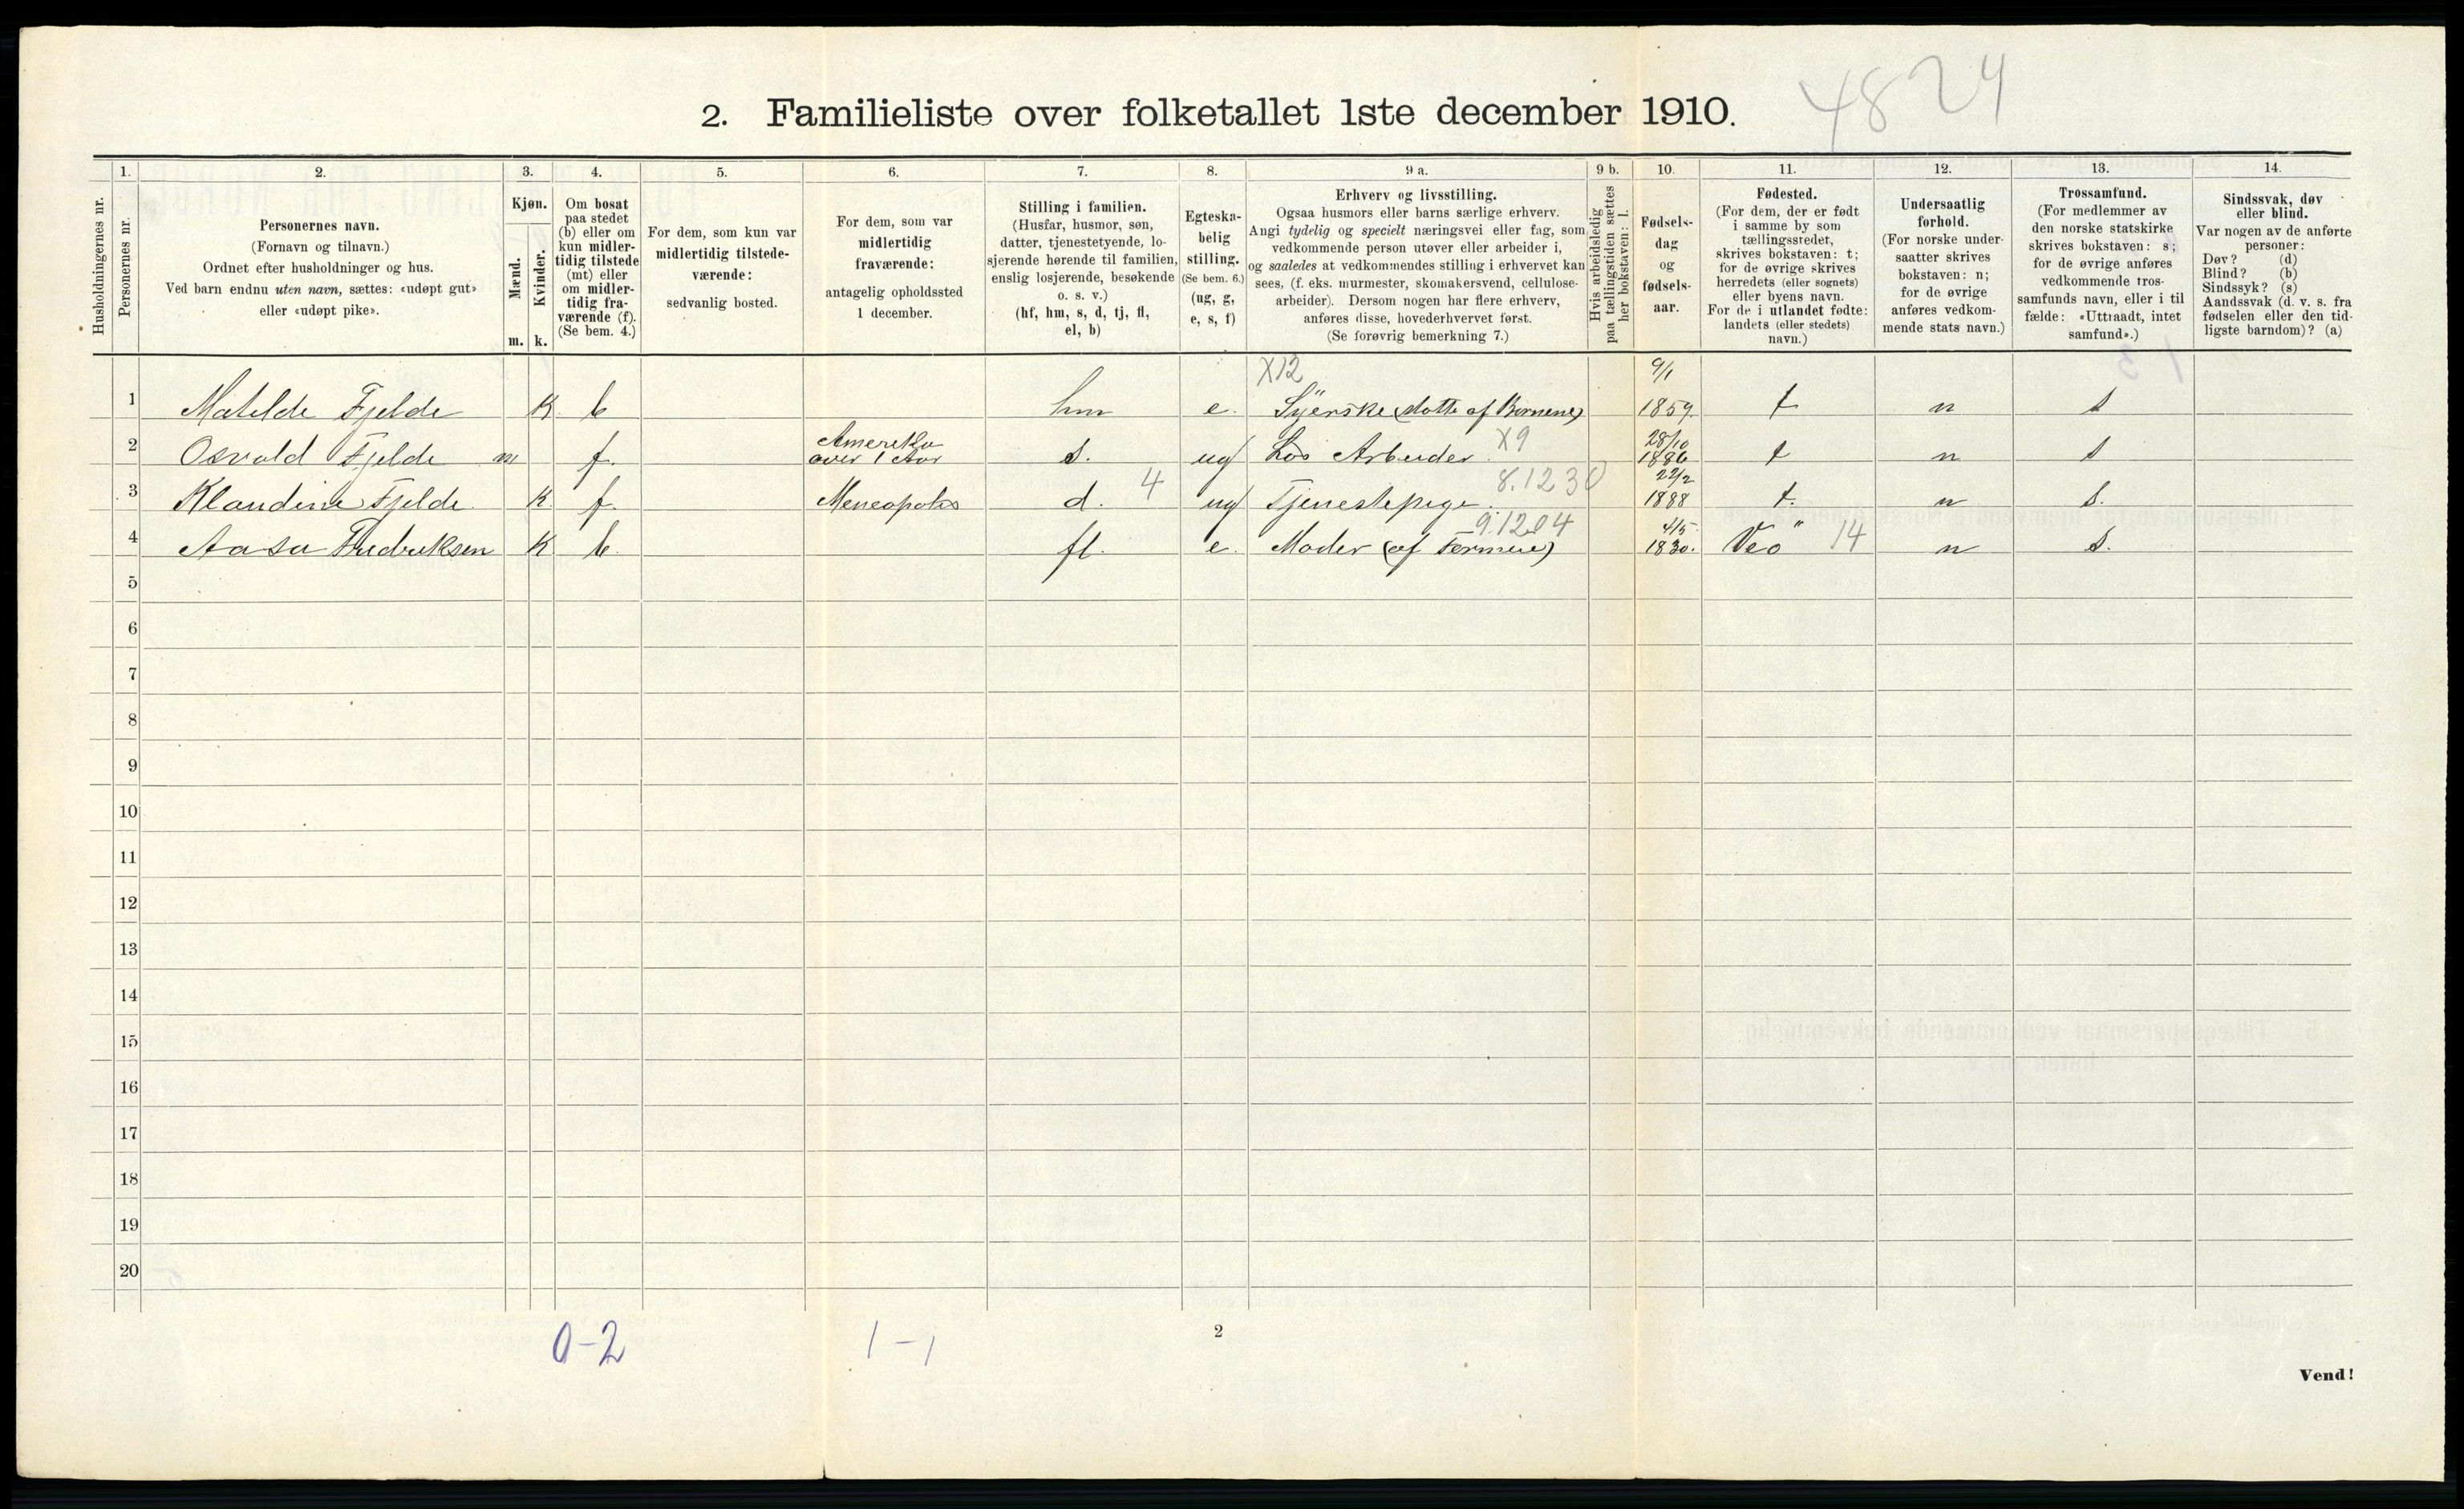 4824
2. Familieliste over folketallet 1ste december 1910.
1. 2. 3. 4. 5. 6. 7. 8. 9 a. 9 b. 10. 11. 12. 13. 14.
Husholdningernes nr.
Personernes nr.
Personernes navn.
(Fornavn og tilnavn.)
Ordnet efter husholdninger og hus.
Ved barn endnu uten navn, sættes: «udøpt gut»
eller «udøpt pike».
Kjøn.
Mænd.
Kvinder.
m. k.
Om bosat
paa stedet
(b) eller om
kun midler-
tidig tilstede
(mt) eller
om midler-
tidig fra-
værende (f).
(Se bem. 4.)
For dem, som kun var
midlertidig tilstede-
værende:
sedvanlig bosted.
For dem, som var
midlertidig
fraværende:
antagelig opholdssted
1 december.
Stilling i familien.
(Husfar, husmor, søn,
datter, tjenestetyende, lo-
sjerende hørende til familien,
enslig losjerende, besøkende
o. s. v.)
(hf, hm, s, d, tj, fl,
el, b)
Egteska-
belig
stilling.
(Se bem. 6.)
(ug, g,
e, s, f)
Erhverv og livsstilling.
Ogsaa husmors eller barns særlige erhverv.
Angi tydelig og specielt næringsvei eller fag, som
vedkommende person utøver eller arbeider i,
og saaledes at vedkommendes stilling i erhvervet kan
sees, (f. eks. murmester, skomakersvend, cellulose-
arbeider). Dersom nogen har flere erhverv,
anføres disse, hovederhvervet først.
(Se forøvrig bemerkning 7.)
Hvis arbeidsledig
paa tællingstiden sættes
her bokstaven: l.
Fødsels-
dag
og
fødsels-
aar.
Fødested.
(For dem, der er født
i samme by som
tællingsstedet,
skrives bokstaven: t;
for de øvrige skrives
herredets (eller sognets)
eller byens navn.
For de i utlandet fødte:
landets (eller stedets)
navn.)
Undersaatlig
forhold.
(For norske under-
saatter skrives
bokstaven: n;
for de øvrige
anføres vedkom-
mende stats navn.)
Trossamfund.
(For medlemmer av
den norske statskirke
skrives bokstaven: s;
for de øvrige anføres
vedkommende tros-
samfunds navn, eller i til
fælde: «Uttraadt, intet
samfund».)
Sindssvak, døv
eller blind.
Var nogen av de anførte
personer:
Døv? (d)
Blind? (b)
Sindssyk? (s)
Aandssvak (d. v. s. fra
fødselen eller den tid-
ligste barndom)? (a)
X12 9/1
1 Matilde Fjelde K b hm e. Syerske (støtte af Børnene) 1859. t n s
Amerika X9 28/10
2 Osvald Fjelde m f. over 1 Aar s. ug Løs Arbeider 1886 t n s
4 8.1230 22/2
3 Klaudine Fjelde K f. Meneapolis d. ug Tjenestepige. 1888 t. n s.
9.1204 4/5
4 Aasa Fredriksen K b. fl. e. Moder (af Formue) 1830. Veø 14 n s.
5
6
7
8
9
10
11
12
13
14
15
16
17
18
19
20
0-2 1-1 2
Vend!